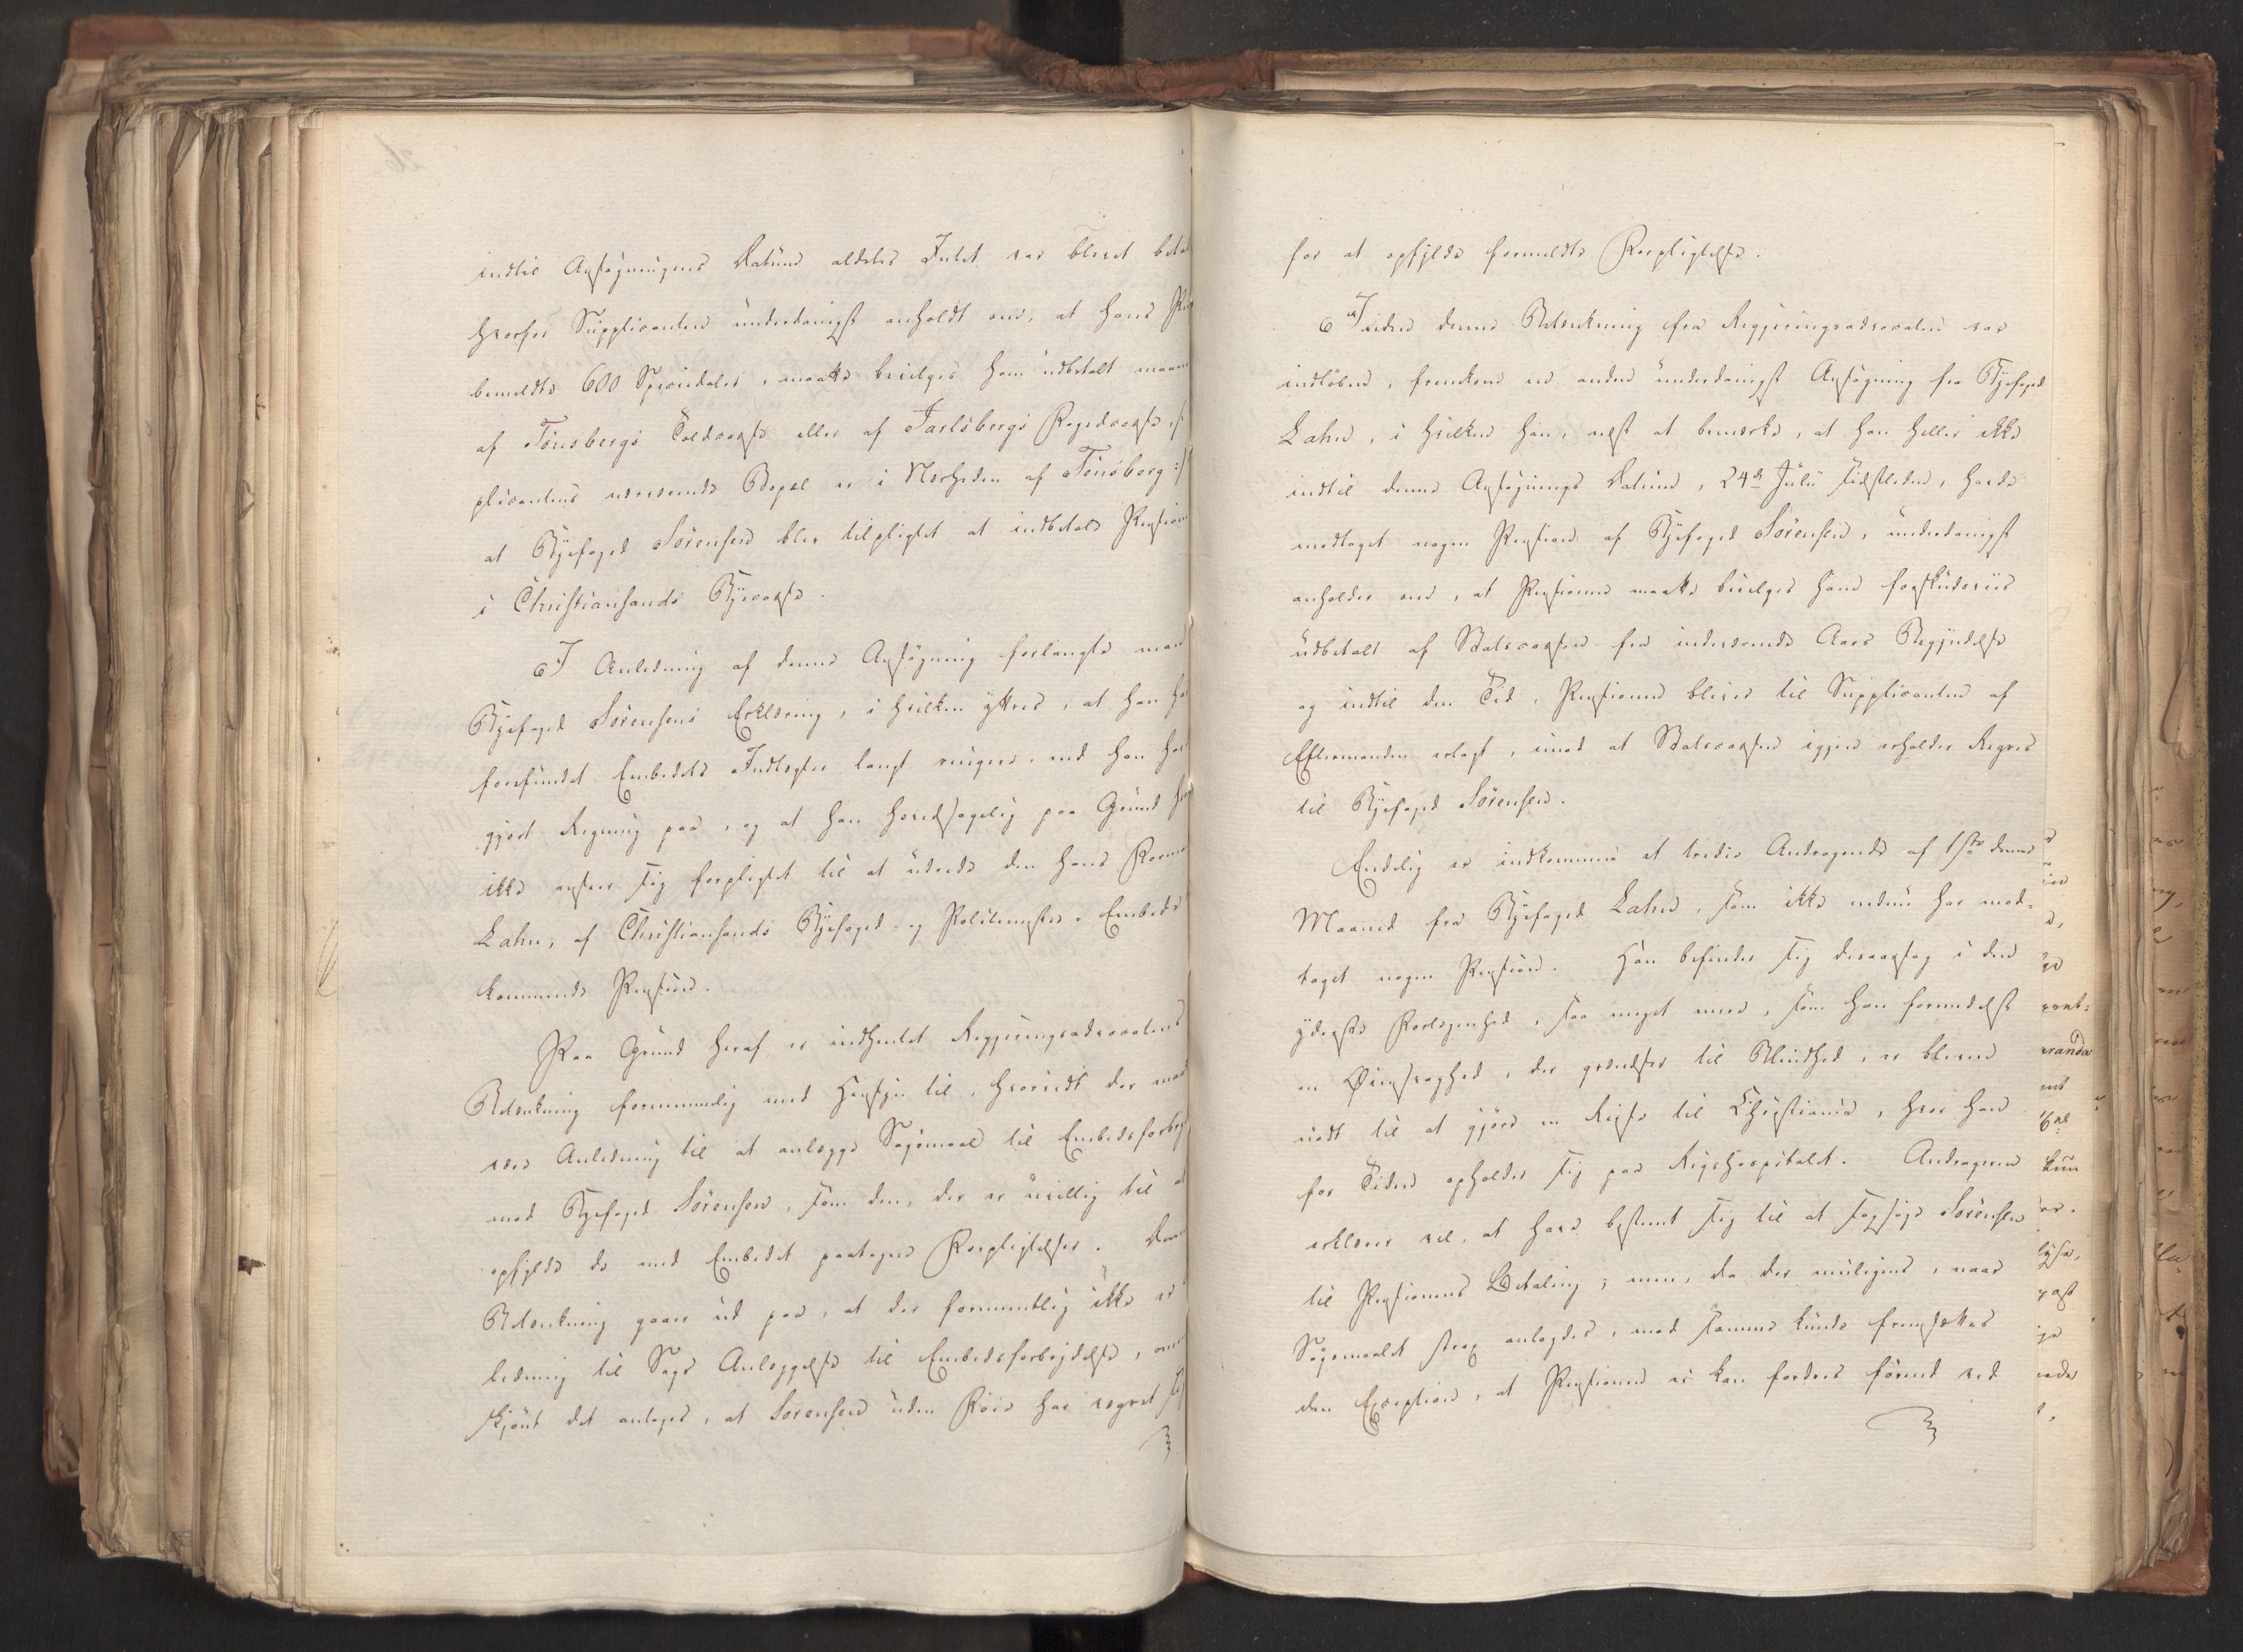 indtil Ansøgningens Datum aldeles Intet var blevet betal
hvorfor Supplicanten underdanigst anholdt om, at hans Pen
bemeldte 600 Speciedaler, maatte bevilges ham udbetalt maan
af Tønsbergs Toldcasse eller af Jarlsbergs Fogedcasse /:
plicantens nærværende Bopæl er i Nærheden af Tønsberg :/
at Byefoged Sørensen blev tilpligtet at indbetale Pension
i Christiansands Byecasse.
I Anledning af denne Ansøgning forlangte man
Byefoged Sørensens Erklæring, i hvilken yttres, at han ha
forefundet Embedets Indtægter langt ringere, end han hav
gjort Regning paa, og at han hovedsagelig paa Grund her
ikke anseer sig forpligtet til at udrede den hans Forma
Lahn, af Christiansands Byefoged- og Politimester-Embede
kommende Pension.
Paa Grund heraf er indhentet Regjeringsadvocatens
Betænkning fornemmelig med Hensyn til, hvorvidt der maat
være Anledning til at anlægge Søgsmaal til Embedsforbry
mod Byefoged Sørensen, som den, der er uvillig til at
opfylde de med Embedet paatagne Forpligtelser. Denn
Betænkning gaaer ud paa, at der formentlig ikke er
ledning til Sags Anlæggelse til Embedsforbrydelse, om
skjønt det antages, at Sørensen uden Føie har vægret sig
for at opfylde formeldte Forpligtelse.
Inden denne Betænkning fra Regjeringsadvocaten var
indløben, fremkom en anden underdanigst Ansøgning fra Byefoged
Lahn, i hvilken han, næst at bemærke, at han heller ikke
indtil denne Ansøgnings Datum, 24de Juli sidstleden, havde
modtaget nogen Pension af Byefoged Sørensen, underdanigst
anholder om, at Pensionen maatte bevilges ham forskudsviis
udbetalt af Statscassen fra indeværende Aars Begyndelse
og indtil den Tid, Pensionen bliver til Supplicanten af
Eftermanden erlagt, imod at Statscassen igjen erholder Regres
til Byefoged Sørensen.
Endelig er indkommen et tredie Andragende af 1ste denne
Maaned fra Byefoged Lahn, som ikke endnu har mod-
taget nogen Pension. Han befinder sig desaarsag i den
yderste Forlegenhed, saa meget mere, som han formedelst
en Øiensvaghed, der grændser til Blindhed, er bleven
nødt til at gjøre en Reise til Christiania, hvor han
for Tiden opholder sig paa Rigshospitalet. Andrageren
erklærer vel, at have bestemt sig til at sagsøge Sørensen
til Pensionens Betaling; men, da der muligens, naar
Søgsmaalet strax anlagdes, mod samme kunde fremsættes
den Exception, at Pensionen ei kan fordres førend ved